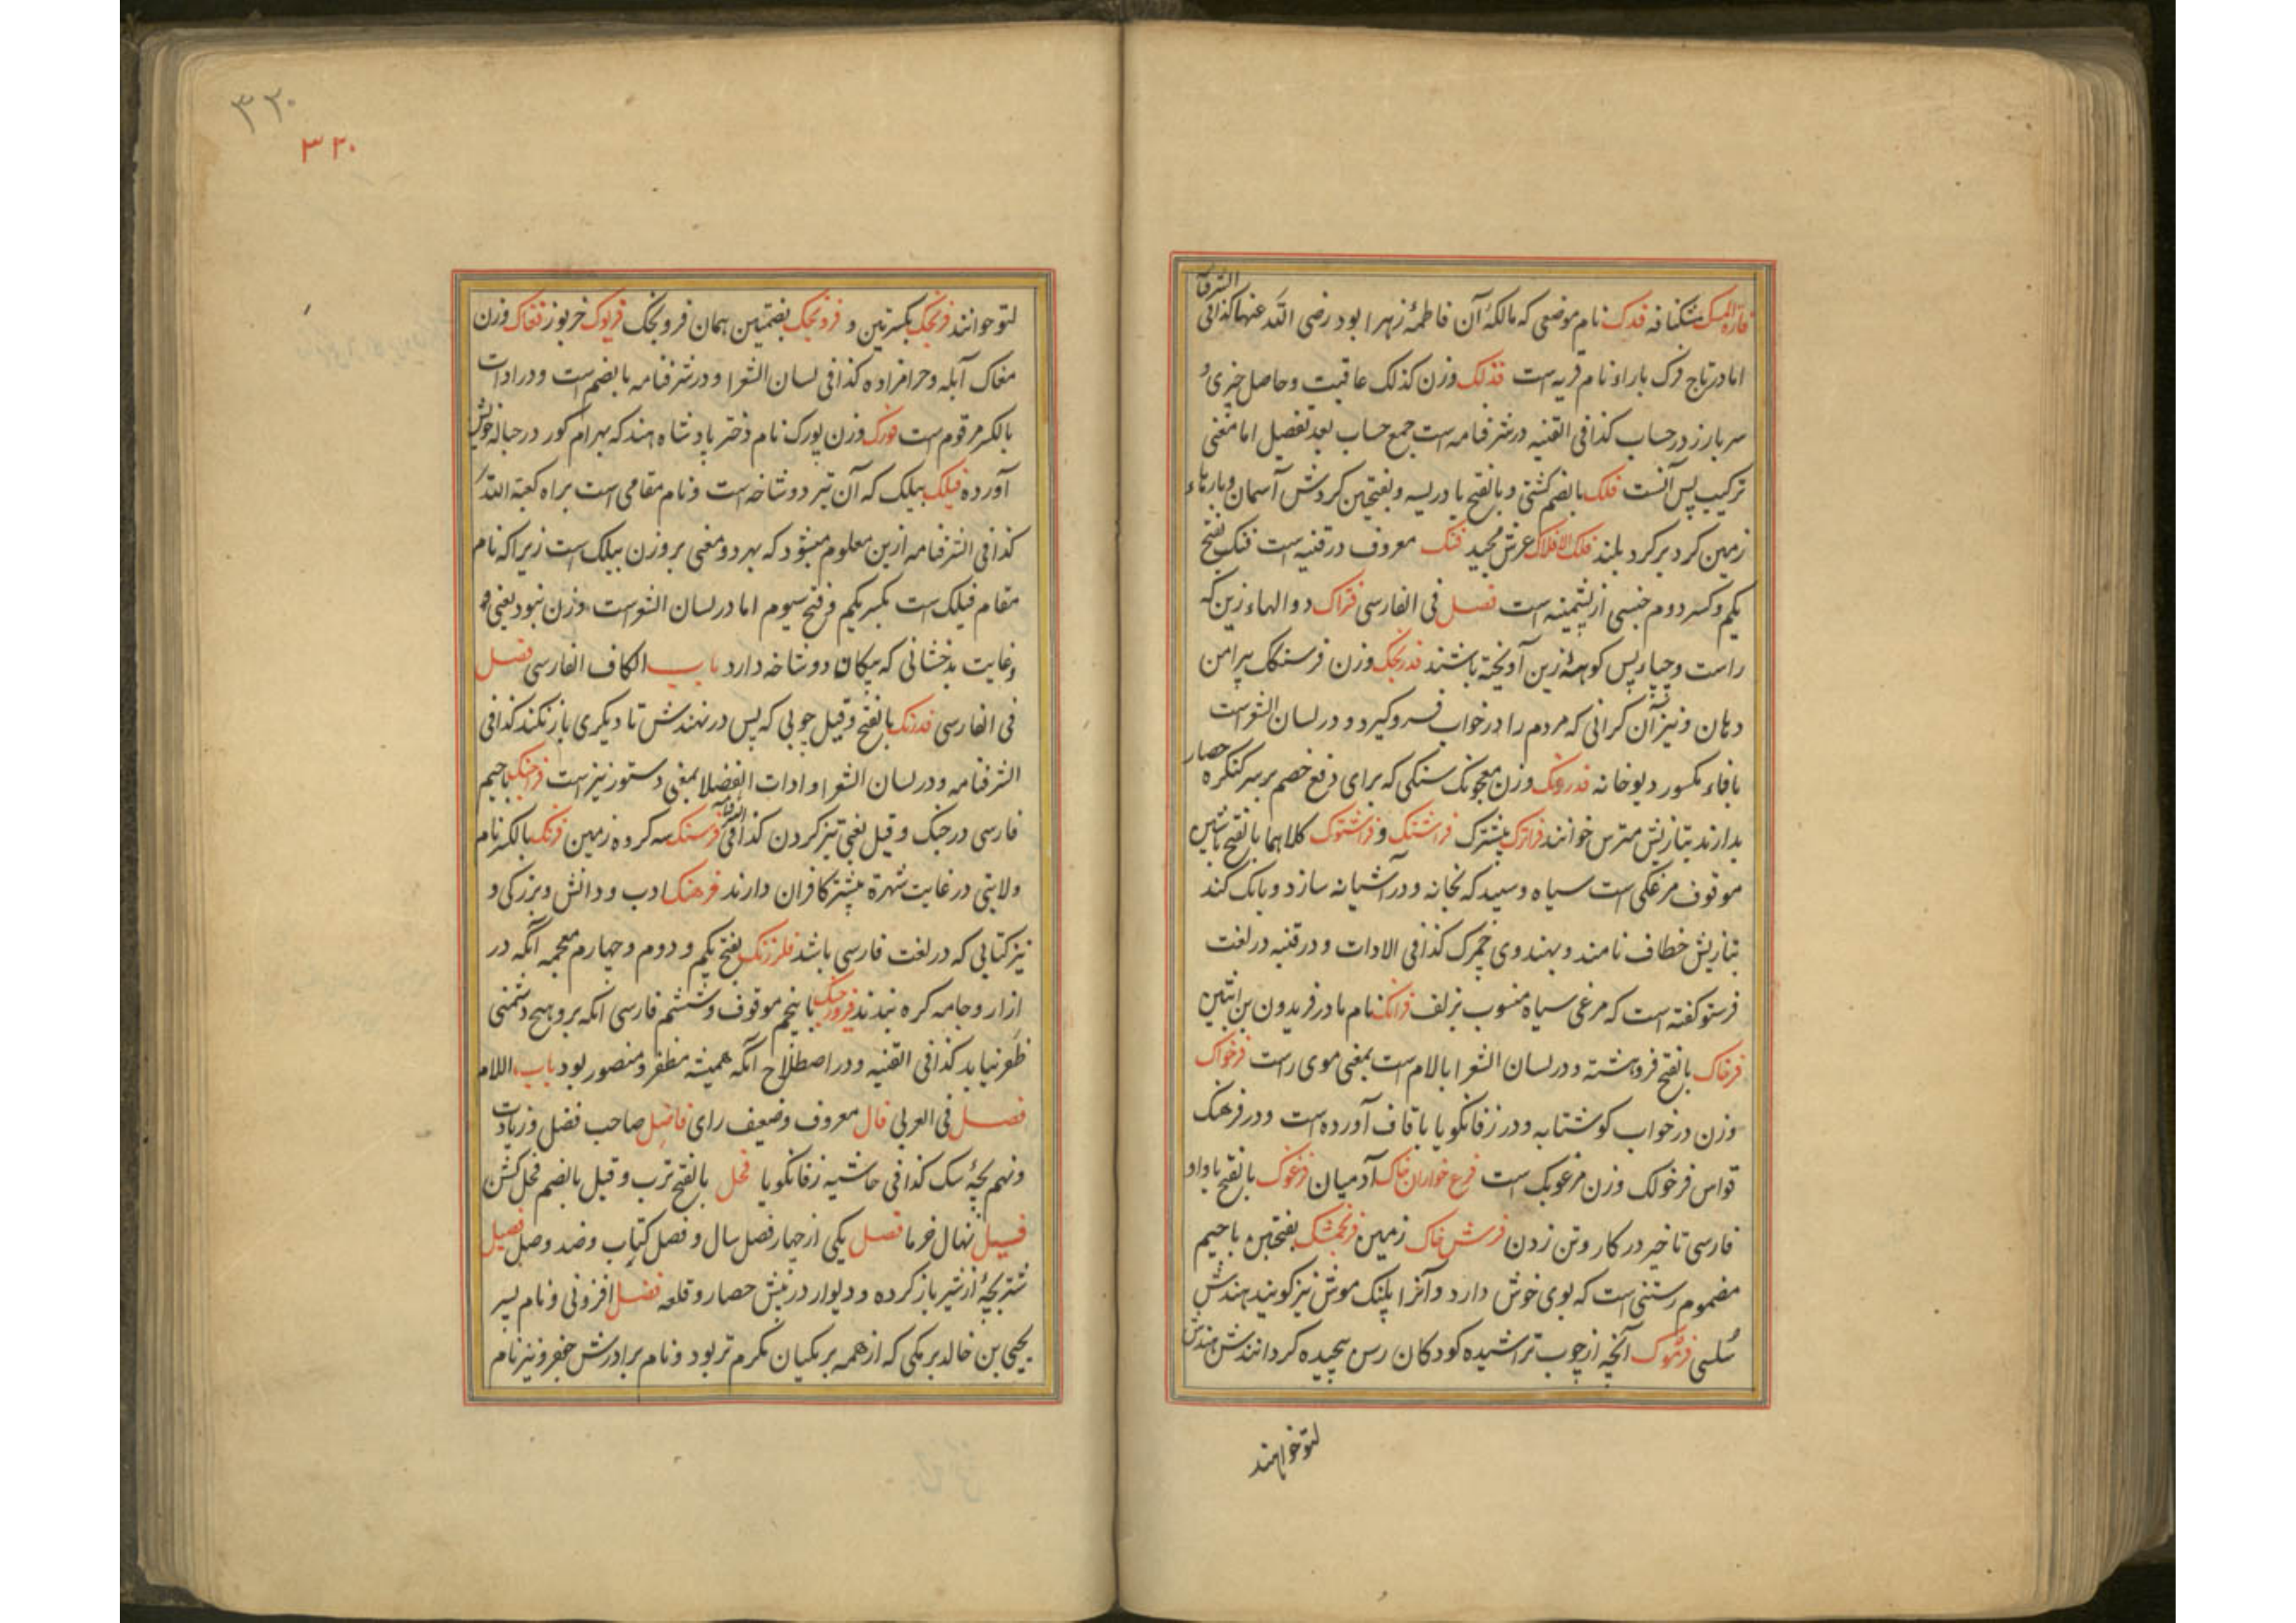 الشرفنا
فارة المسک مشکنافه فدک نام موضعی که مالکهٔ آن فاطمهٔ زهرا بود رضی الله عنها کذا فی
اما در تاج فرک با راء نام قریه است فذلک وزن کذلک عاقبت و حاصل چیزی و
سر بارز در حساب کذا فی القنیه در شرفنامه است جمع حساب بعد تفصیل اما معنی
ترکیب پس آنست فلک بالضم کشتی و بالفتح بادریسه و بفتحتین کردش آسمان و پارهاء
زمین کرد بر کرد بلند فلک الافلاک عرش مجید فنک معروف در قنیه است فنک بفتح
یکم و کسر دوم جنسی از پشمینه است فصل فی الفارسی فتراک دوالهاء زین که
راست و چپا و پس کوههٔ زین آویخته باشند فدرنجک وزن فرسنگک پیرامن
دهان و نیز آن کرانی که مردم را در خواب فرو کیرد و در لسان الشعراست
با فاء مکسور دیوخانه فدرونک وزن معجونک سنکی که برای دفع خصم بر سر کنکره حصار
بدارند بتازیش مترس خوانند فراترک پیشترک فراشتک و فراشتوک کلاهما بالفتح با شین
موقوف مرغکی است سیاه و سپید که بخانه و در آشیانه سازد و بانک کند
بتازیش خطاف نامند و بهندوی چمرک کذا فی الادات و در قنیه در لغت
فرستو کفته است که مرغی سیاه منسوب بزلف فرانک نام مادر فریدون بن اتبین
فرخاک بالفتح فروهشته و در لسان الشعرا بالام است بمعنی موی راست فرخواک
وزن در خواب کوشتابه و در زفانکویا با قاف آورده است و در فرهنک
قواس فرخولک وزن مرغوبک است فرع خواران خاک آدمیان فرغوک بالفتح با واو
فارسی تاخیر در کار و تن زدن فرش خاک زمین فرنجمشک بفتحتین با جیم
مضموم رستنی است که بوی خوش دارد و آنرا پلنک موش نیز کویند هندش
تلسی فرموک آنچه از چوب تراشیده کودکان رسن پیچیده کردانندش هندش
لتو خوانند
۳۲۰
۳۲۰
لتو خوانند فرنجک بکسرتین و فرونجک بضمتین همان فرونجک فریوک خربوز فغاک وزن
مغاک آبله و حرامزاده کذا فی لسان الشعرا و در شرفنامه بالضم است و در ادات
بالکسر مرقوم است فورک وزن پورک نام دختر پادشاه هند که بهرام کور در حباله خویش
آورده فیلک بیلک که آن تیر دوشاخه است و نام مقامی است براه کعبة الله
کذا فی الشرفنامه ازین معلوم میشود که بهر دو معنی بر وزن بیلک است زیرا که نام
مقام فیلک است بکسر یکم و فتح سیوم اما در لسان الشعراست وزن نبود یعنی
وغایت بدخشانی که پیکان دوشاخه دارد باب الکاف الفارسی فصل
فی الفارسی فدرنک بالفتح وقیل چوبی که پس در نهندش تا دیکری باز نکند کذا فی
الشرفنامه و در لسان الشعرا و ادات الفضلا بمعنی دستور نیز است فراخنک با جیم
فارسی در جنک و قیل یعنی تیز کردن کذا فی الشرفنامه فرسنک سه کروه زمین فرنک بالکسر نام
ولایتی در غایت شهرة بیشتر کافران دارند فرهنک ادب و دانش و بزرکی و
نیز کتابی که در لغت فارسی باشد فلرزنک بفتح یکم و دوم و چهارم معجمه آنکه در
ازار و جامه کره بندند فیروز جنک با پنجم موقوف و ششم فارسی آنکه برو هیچ دشمنی
ظفر نیابد کذا فی القنیه و در اصطلاح آنکه همیشه مظفر و منصور بود باب اللام
فصل فی العربی فال معروف و ضعیف رای فاضل صاحب فضل و زیادت
و نهم بچهٔ سک کذا فی حاشیه زفانکویا فجل بالفتح ترب و قیل بالضم فحل کشن
فسیل نهال خرما فصل یکی از چهار فصل سال و فصل کتاب و ضد وصل فصیل
شتر بچهٔ از شیر باز کرده و دیوار در پیش حصار و قلعه فضل افزونی و نام پسر
یحیی بن خالد برمکی که از همه برمکیان مکرم تر بود و نام برادرش جعفر و نیز نام